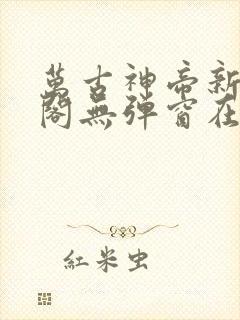 萬古神帝新
閣無彈窗在
紅米虫